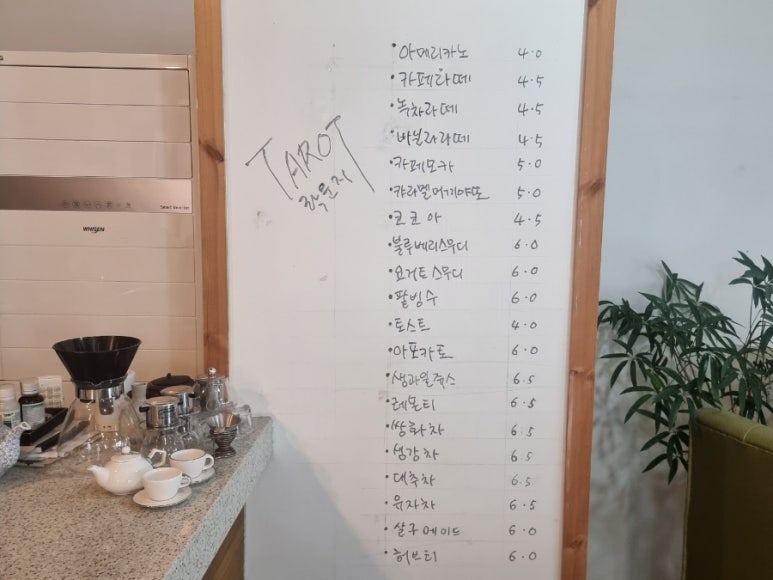 TAROT
라운지
• 아메리카노 4.0
• 카페라떼 4.5
• 녹차라떼 4.5
• 바닐라라떼 4.5
• 카페모카 5.0
• 카라멜마끼야또 5.0
• 코코아 4.5
• 블루베리스무디 6.0
• 요거트스무디 6.0
• 팥빙수 6.0
• 토스트 4.0
• 아포카토 6.0
• 생과일쥬스 6.5
• 레몬티 6.5
• 쌍화차 6.5
• 생강차 6.5
• 대추차 6.5
• 유자차 6.5
• 살구에이드 6.0
• 허브티 6.0
WHISEN